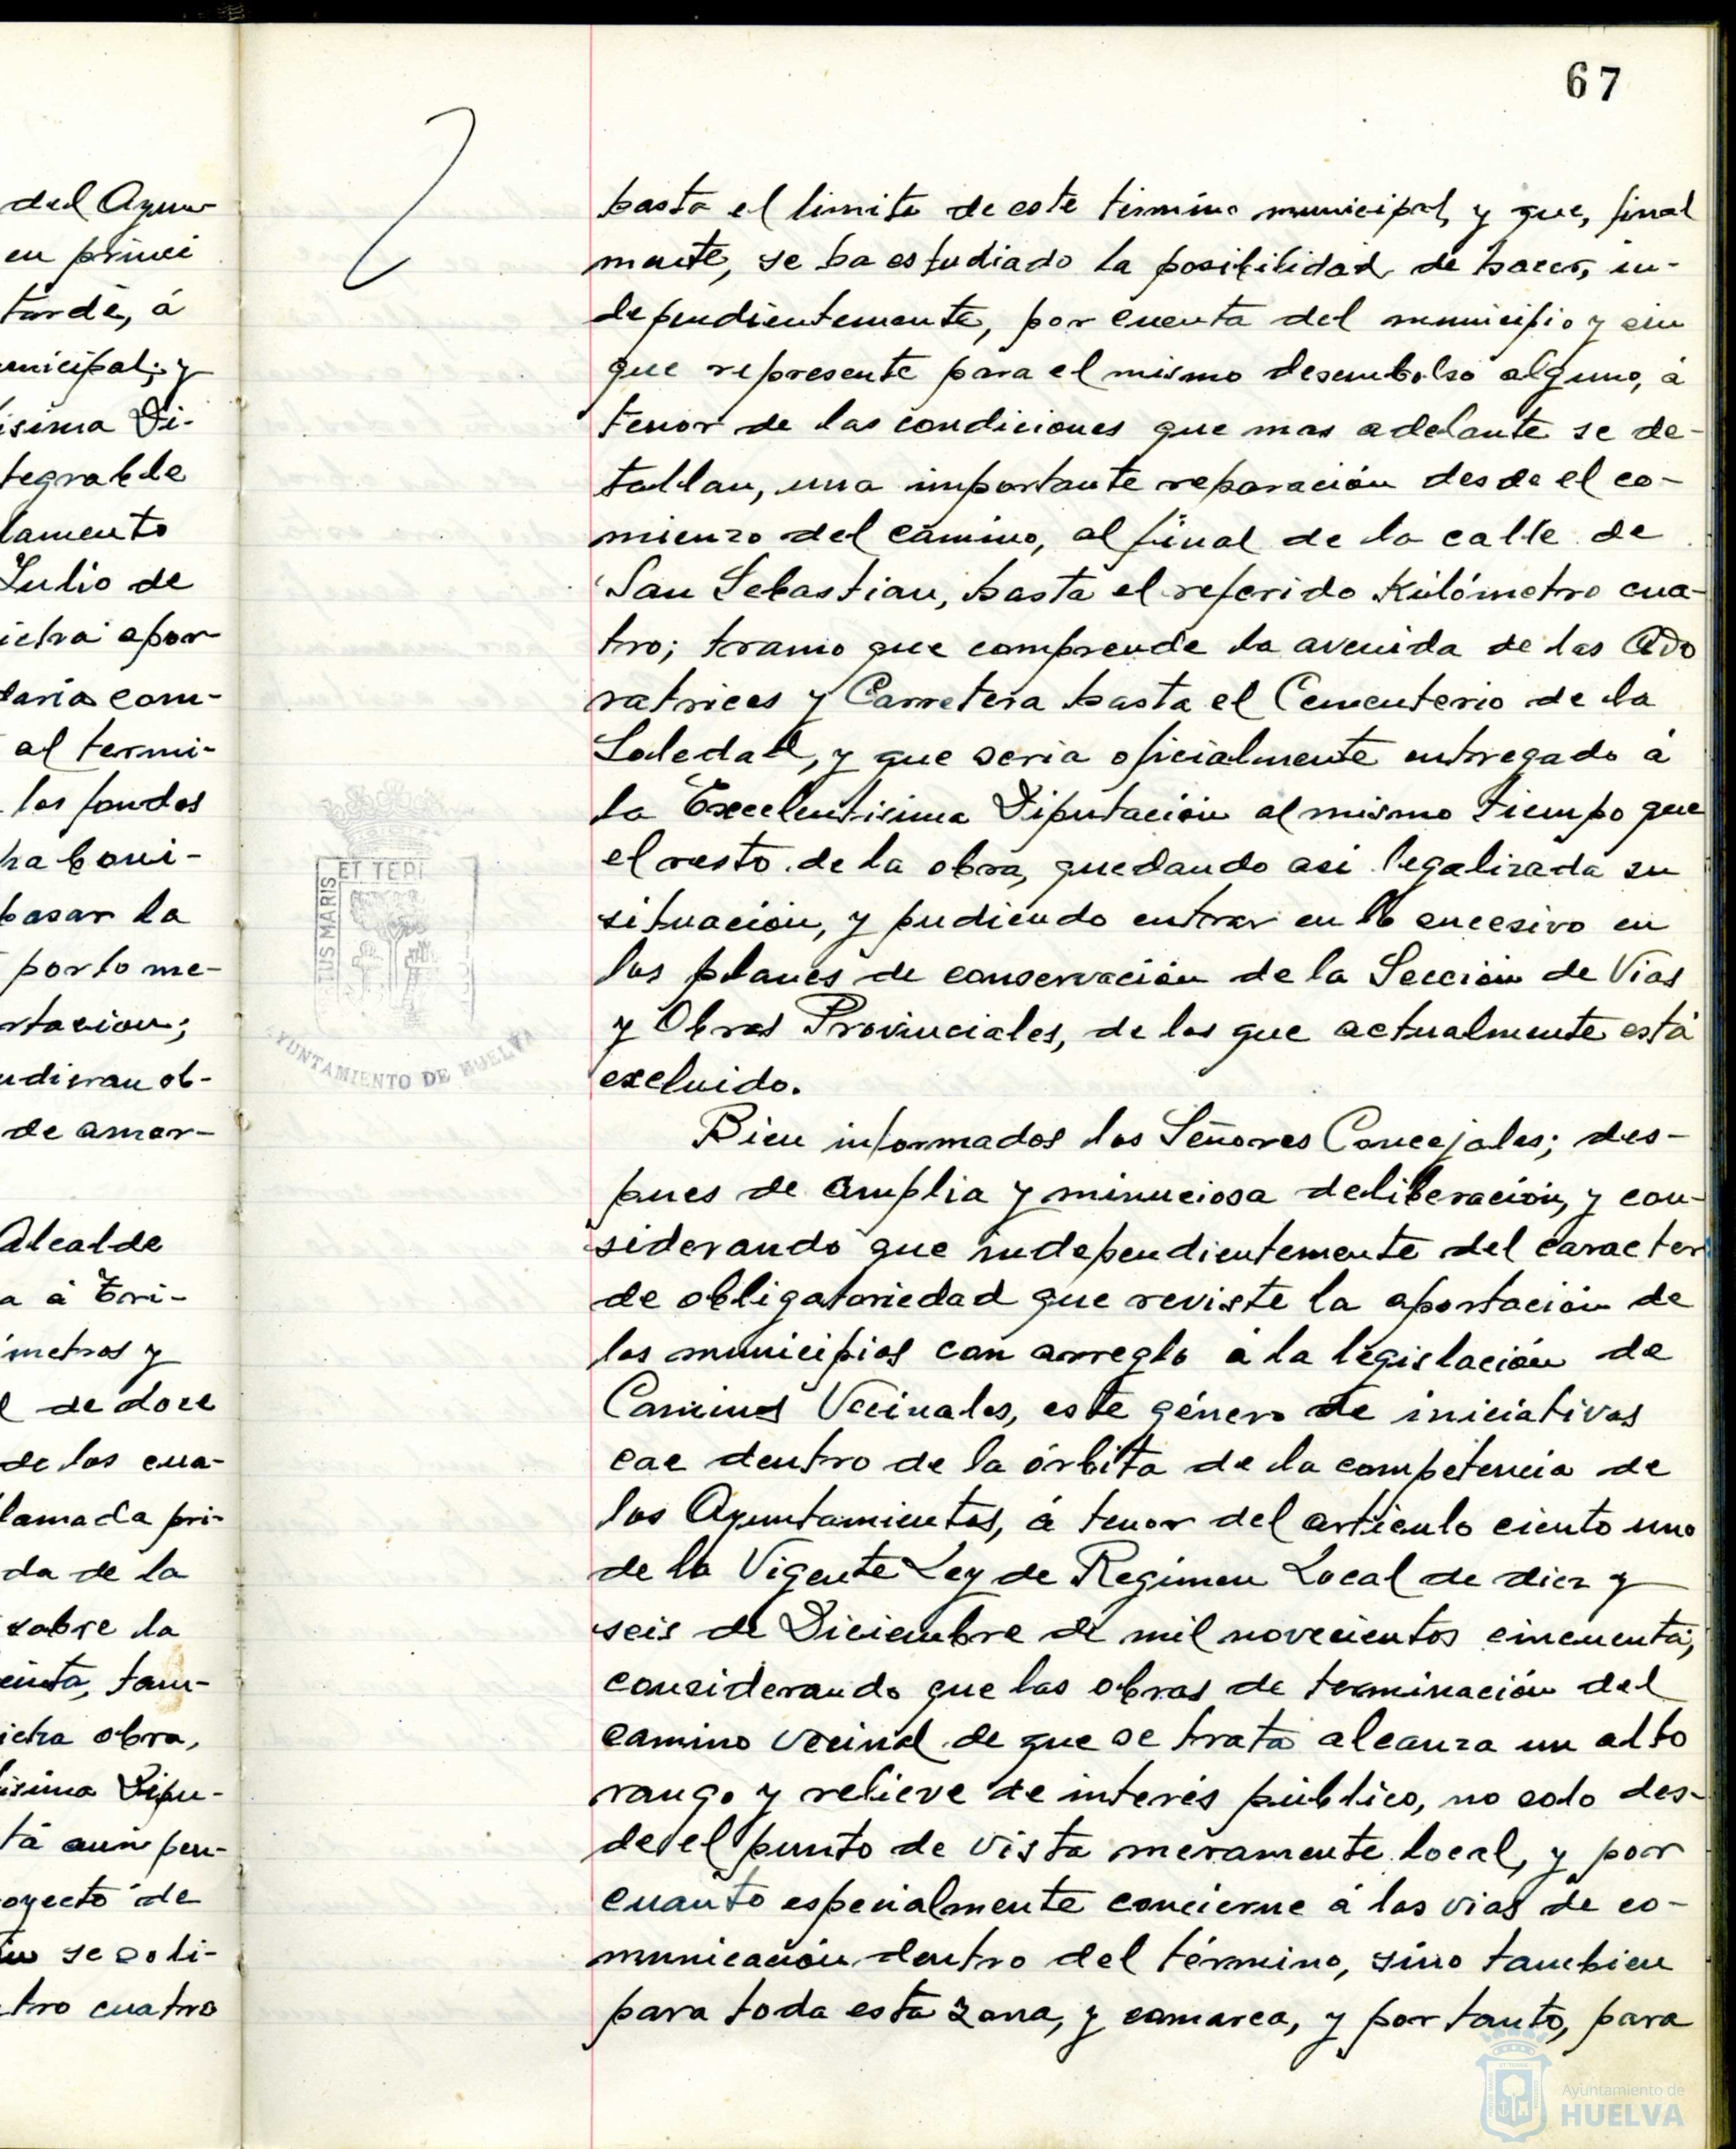 67
del Ayun-
en princi
tarde, á
unicipal; y
ísima Di-
tegrable
lamento
Julio de
icha apor-
taria com-
al termi-
los fondos
ha boni-
basar la
por lo me-
rtacion;
udieran ob-
de amor-
Alcalde
a á Tri-
imetros y
de doce
de los cua-
llamada pri-
da de la
sobre la
einta, tam-
icha obra,
ísima Dipu-
tá aún pen-
oyecto de
se soli-
tro cuatro
hasta el limite de este término municipal, y que, final
mente, se ha estudiado la posibilidad de hacer, in-
dependientemente, por cuenta del municipio y sin
que represente para el mismo desembolso alguno, á
tenor de las condiciones que mas adelante se de-
tallan, una importante reparación desde el co-
mienzo del camino, al final de la calle de
San Sebastian, hasta el referido Kilómetro cua-
tro; tramo que comprende la avenida de las Ado
ratrices y Carretera hasta el Cementerio de la
Soledad, y que seria oficialmente entregado á
la Excelentisima Diputación al mismo tiempo que
el resto de la obra, quedando asi legalizada su
situación, y pudiendo entrar en lo sucesivo en
los planes de conservación de la Sección de Vias
y Obras Provinciales, de los que actualmente está
excluido.
Bien informados los Señores Concejales; des-
pues de amplia y minuciosa deliberación, y con-
siderando que independientemente del caracter
de obligatoriedad que reviste la aportación de
los municipios con arreglo á la legislación de
Caminos Vecinales, este género de iniciativas
cae dentro de la órbita de la competencia de
los Ayuntamientos, á tenor del articulo ciento uno
de la Vigente Ley de Regimen Local de diez y
seis de Diciembre de mil novecientos cincuenta;
considerando que las obras de terminación del
camino vecinal de que se trata alcanza un alto
rango y relieve de interés público, no solo des-
de el punto de vista meramente local, y por
cuanto especialmente concierne á las vias de co-
municación dentro del término, sino tambien
para toda esta zona, y comarca, y por tanto, para
ET TERR
TUS MARIS
AYUNTAMIENTO DE HUELVA
Ayuntamiento de
HUELVA